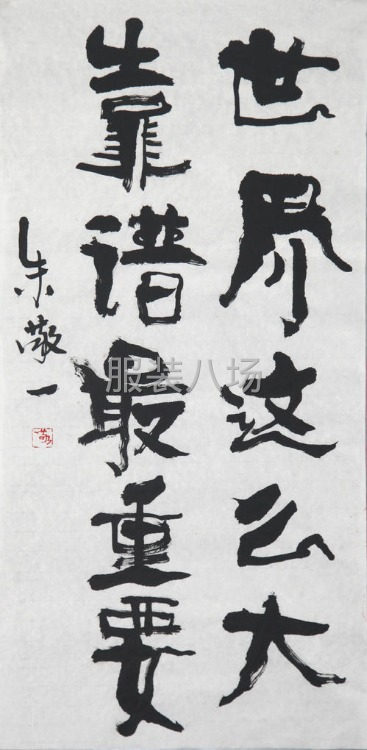 世界这么大
靠谱最重要
朱敬一
服装八场